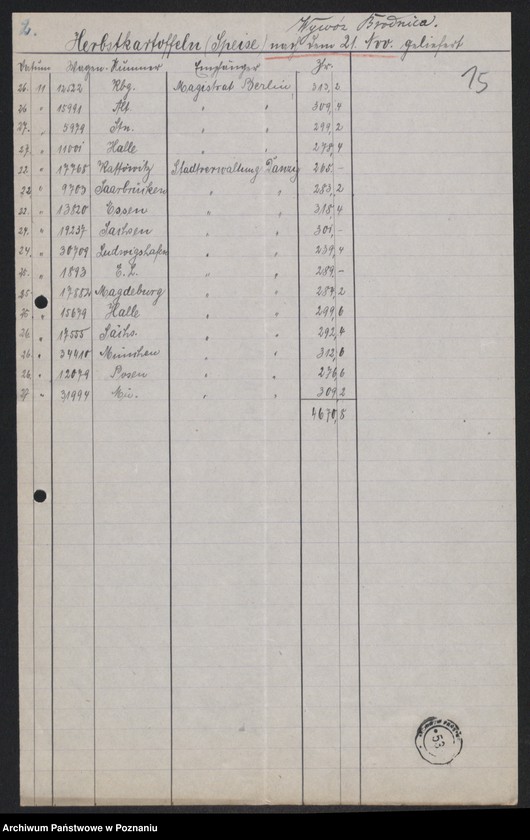 2.
Wywóz Brodnica.
Herbstkartoffeln (Speise) nach dem 21. Nov. geliefert
15
Datum Wagen-Nummer Empfänger Ztr.
26. 11 12522 Kbg. Magistrat Berlin 313,2
26 " 15991 Alt " " 309,4
27. " 5979 Stn. " " 299,2
27. " 11001 Halle " " 278,4
22. " 17768 Kattowitz Stadtverwaltung Danzig 265,-
22. " 9703 Saarbrücken " " 283,2
22. " 13820 Essen " " 318,4
24. " 19237 Sachsen " " 301,-
24. " 30709 Ludwigshafen " " 239,4
" 1893 E.L. " " 289,-
25. " 17552 Magdeburg " " 287,2
" 15679 Halle " " 299,6
26. " 17555 Sächs. " " 292,4
26. " 34410 München " " 312,6
26. " 12079 Posen " " 276,6
27. " 31994 Mü. " " 309,2
4670,8
53
Archiwum Państwowe w Poznaniu